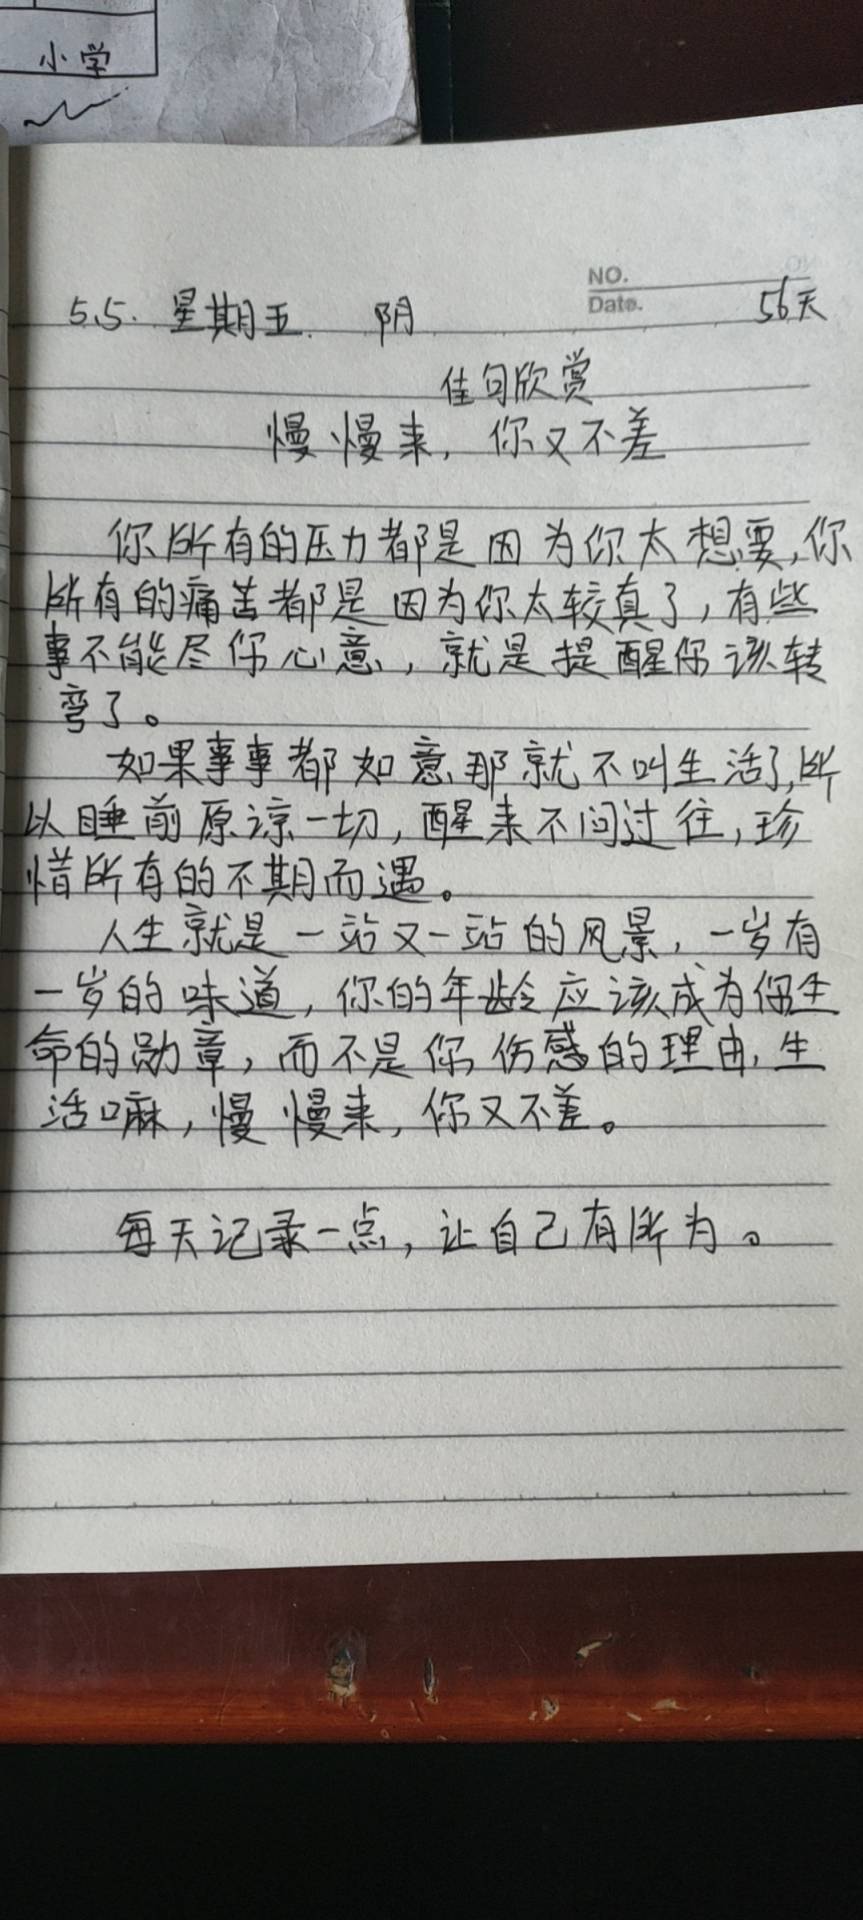 小学
NO.
Date.
5.5. 星期五. 阴 56天
佳句欣赏
慢慢来，你又不差
你所有的压力都是因为你太想要,你
所有的痛苦都是因为你太较真了，有些
事不能尽你心意，就是提醒你该转
弯了。
如果事事都如意,那就不叫生活了,所
以睡前原谅一切，醒来不问过往，珍
惜所有的不期而遇。
人生就是一站又一站的风景，一岁有
一岁的味道，你的年龄应该成为你生
命的勋章，而不是你伤感的理由,生
活嘛，慢慢来，你又不差。
每天记录一点，让自己有所为。